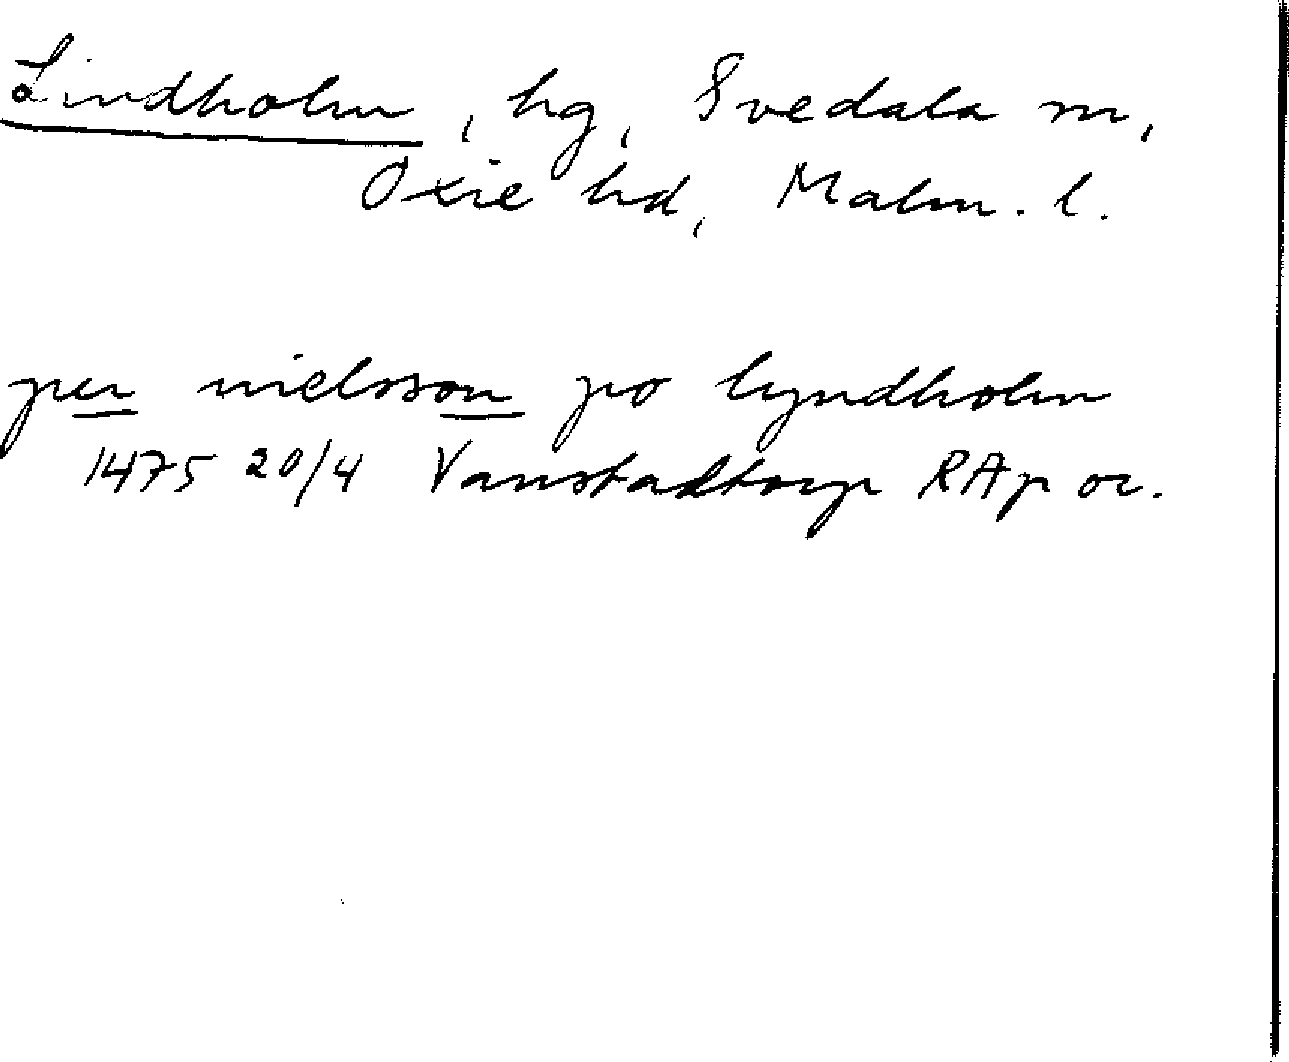 Lindholm, hg, Svedala sn,
Oxie hd, Malm. l.
per nielsson po lyndholm
1475 20/4 Vanstadtorp RAp or.